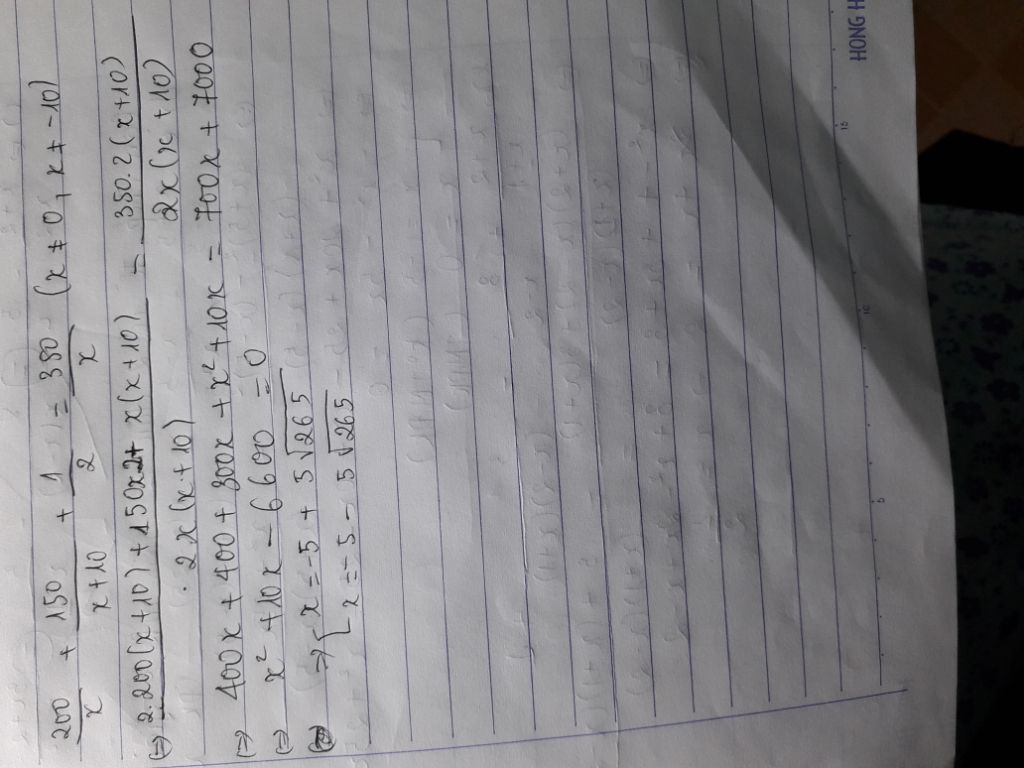 200/x + 150/x+10 + 1/2 = 350/x (x ≠ 0, x ≠ -10)
(=) 2.200(x+10) + 150x2 + x(x+10) / 2x(x+10) = 350.2(x+10) / 2x(x+10)
(=) 400x + 400 + 300x + x² + 10x = 700x + 7000
(=) x² + 10x - 6600 = 0
=> [ x = -5 + 5√265
x = -5 - 5√265
HONG H
5
10
15